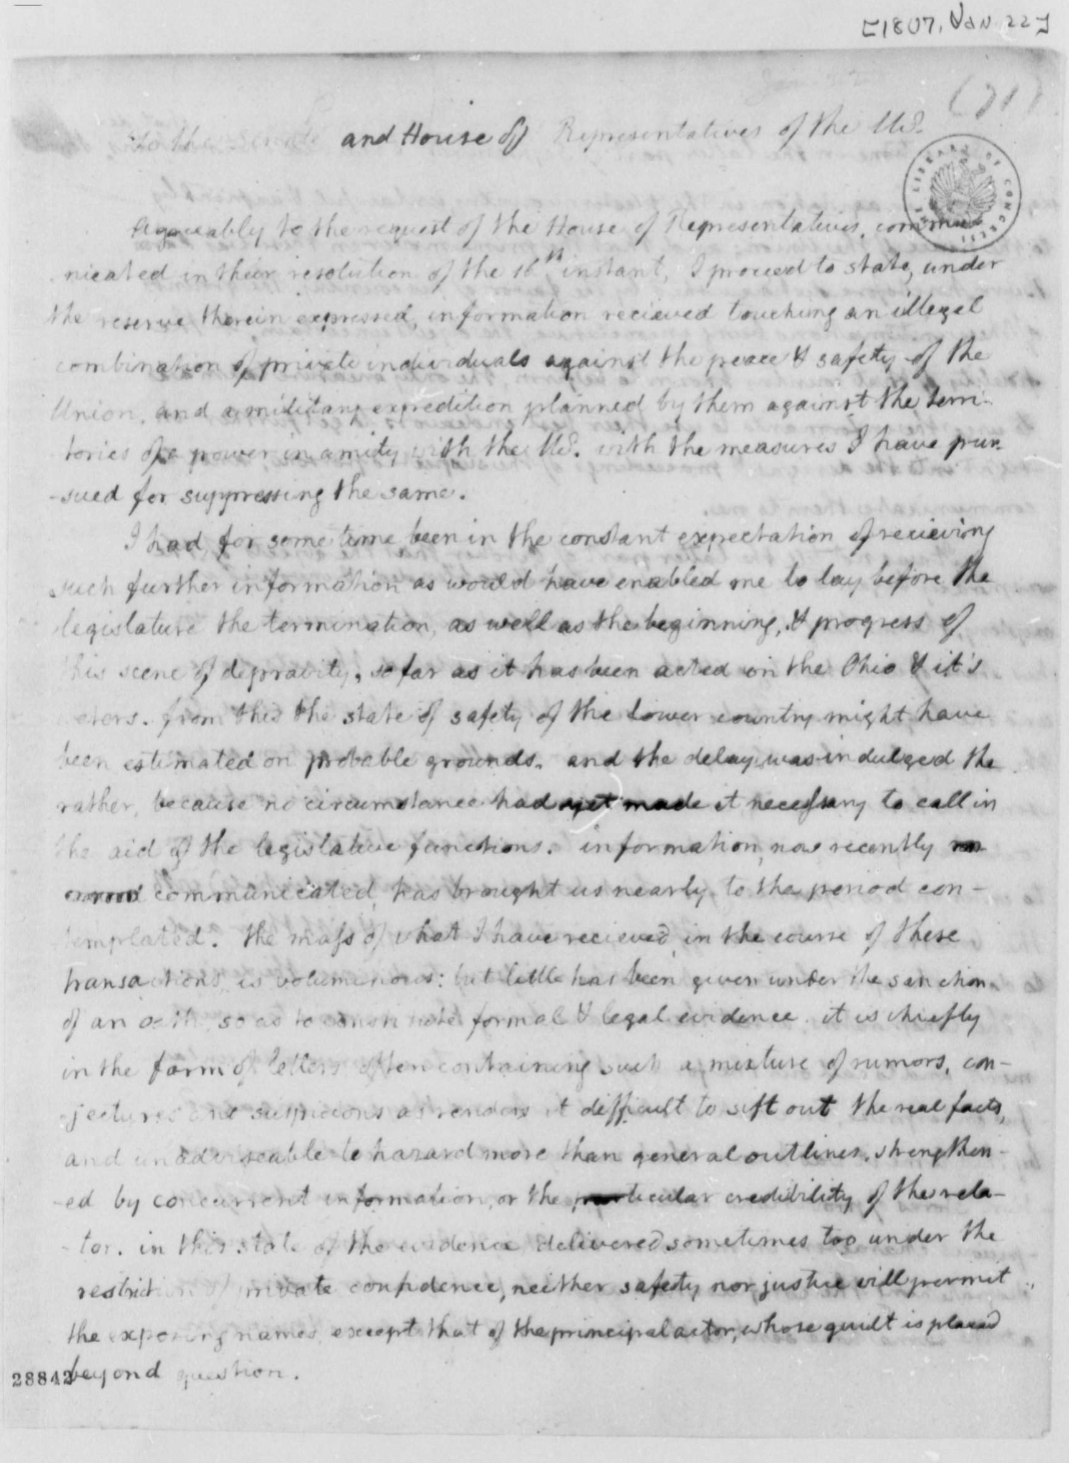 [1807, Jan 22]
To the Senate and House of Representatives of the U.S.
LIBRARY OF CONGRESS
Agreeably to the request of the House of Representatives, commu-
nicated in their resolution of the 16th instant, I proceed to state, under
the reserve therein expressed, information recieved touching an illegal
combination of private individuals against the peace & safety of the
Union, and a military expedition planned by them against the terri-
tories of a power in amity with the U.S. with the measures I have pur-
-sued for suppressing the same.
I had for some time been in the constant expectation of recieving
such further information as would have enabled me to lay before the
legislature the termination, as well as the beginning, & progress of
this scene of depravity, so far as it has been acted on the Ohio & it's
waters. from this the state of safety of the lower country might have
been estimated on probable grounds. and the delay was indulged the
rather, because no circumstance had yet made it necessary to call in
the aid of the legislative functions. information, now recently
communicated, has brought us nearly to the period con-
templated. the mass of what I have recieved, in the course of these
transactions, is voluminous: but little has been given under the sanction
of an oath, so as to constitute formal & legal evidence. it is chiefly
in the form of letters, often containing such a mixture of rumors, con-
jectures and suspicions as renders it difficult to sift out the real facts,
and unadviseable to hazard more than general outlines, strengthen-
-ed by concurrent information, or the particular credibility of the rela-
-tor. in this state of the evidence, delivered sometimes too under the
restriction of private confidence, neither safety nor justice will permit
the exposing names, except that of the principal actor, whose guilt is placed
beyond question.
28842